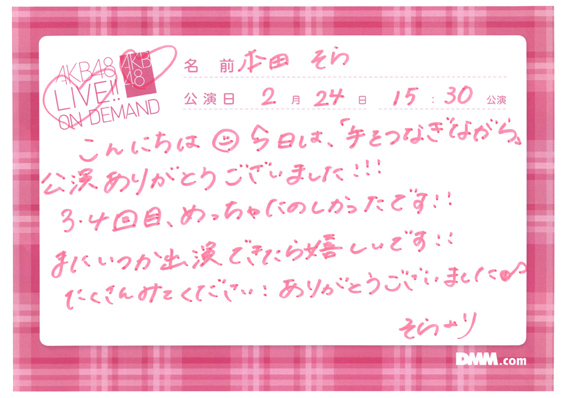 AKB48
LIVE!!
ON DEMAND
AKB
48
名前 本田 そら
公演日 2月24日 15:30公演
こんにちは 今日は、「手をつなぎながら」
公演ありがとうございました!!!
3.4回目、めっちゃたのしかったです!!
またいつか出演できたら嬉しいです!!
たくさんみてください!ありがとうございました
DMM.com